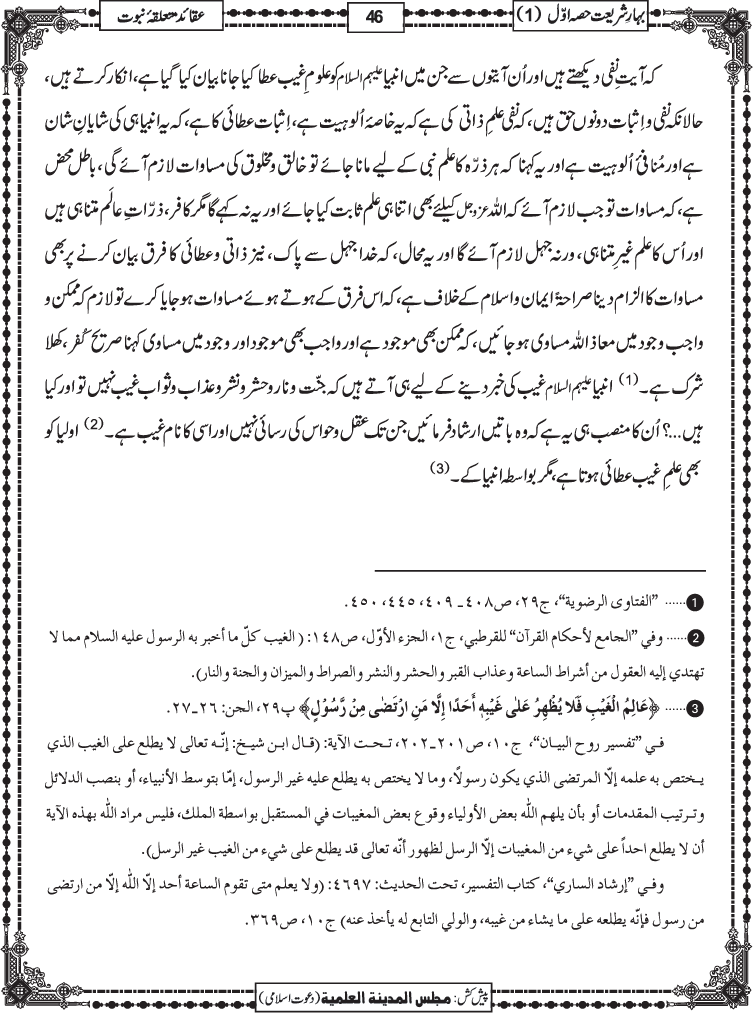 بہارِ شریعت حصہ اوّل (1)
46
عقائد متعلقۂ نبوت
کہ آیتِ نفی دیکھتے ہیں اور اُن آیتوں سے جن میں انبیا علیہم السلام کو علومِ غیب عطا کیا جانا بیان کیا گیا ہے، انکار کرتے ہیں،
حالانکہ نفی و اِثبات دونوں حق ہیں، کہ نفی علمِ ذاتی کی ہے کہ یہ خاصۂ اُلوہیت ہے، اِثبات عطائی کا ہے، کہ یہ انبیا ہی کی شایانِ شان
ہے اور مُنافیٔ اُلوہیت ہے اور یہ کہنا کہ ہر ذرّہ کا علم نبی کے لیے مانا جائے تو خالق و مخلوق کی مساوات لازم آئے گی، باطل محض
ہے، کہ مساوات تو جب لازم آئے کہ اللہ عزوجل کیلئے بھی اتنا ہی علم ثابت کیا جائے اور یہ نہ کہے گا مگر کافر، ذرّاتِ عالَم متناہی ہیں
اور اُس کا علم غیرِ متناہی، ورنہ جہل لازم آئے گا اور یہ محال، کہ خدا جہل سے پاک، نیز ذاتی و عطائی کا فرق بیان کرنے پر بھی
مساوات کا الزام دینا صراحۃً ایمان و اسلام کے خلاف ہے، کہ اس فرق کے ہوتے ہوئے مساوات ہو جایا کرے تو لازم کہ ممکن و
واجب وجود میں معاذ اللہ مساوی ہو جائیں، کہ ممکن بھی موجود ہے اور واجب بھی موجود اور وجود میں مساوی کہنا صریح کُفر، کھلا
شرک ہے۔ (1) انبیا علیہم السلام غیب کی خبر دینے کے لیے ہی آتے ہیں کہ جنّت و نار و حشر و نشر و عذاب و ثواب غیب نہیں تو اور کیا
ہیں...؟ اُن کا منصب ہی یہ ہے کہ وہ باتیں ارشاد فرمائیں جن تک عقل و حواس کی رسائی نہیں اور اسی کا نام غیب ہے۔ (2) اولیا کو
بھی علمِ غیب عطائی ہوتا ہے، مگر بواسطہ انبیا کے۔ (3)
1...... ”الفتاوی الرضویة“، ج۲۹، ص۴۰۸ـ ۴۰۹، ۴۴۵، ۴۵۰.
2...... وفي ”الجامع لأحكام القرآن“ للقرطبي، ج۱، الجزء الأوّل، ص۱۴۸: ( الغيب كلّ ما أخبر به الرسول عليه السلام مما لا
تهتدي إليه العقول من أشراط الساعة وعذاب القبر والحشر والنشر والصراط والميزان والجنة والنار).
3...... ﴿عَالِمُ الْغَيْبِ فَلَا يُظْهِرُ عَلٰى غَيْبِهٖ أَحَدًا إِلَّا مَنِ ارْتَضٰى مِنْ رَّسُوْلٍ﴾ پ۲۹، الجن: ۲۶ـ۲۷.
فـي ”تفسير روح البيـان“، ج۱۰، ص۲۰۱ـ۲۰۲، تـحـت الآية: (قـال ابـن شيـخ: إنّـه تعالى لا يطلع على الغيب الذي
يـختص به علمه إلّا المرتضى الذي يكون رسولًا، وما لا يختص به يطلع عليه غير الرسول، إمّا بتوسط الأنبياء، أو بنصب الدلائل
وتـرتيب المقدمات أو بأن يلهم اللّٰه بعض الأولياء وقوع بعض المغيبات في المستقبل بواسطة الملك، فليس مراد اللّٰه بهذه الآية
أن لا يطلع احداً على شيء من المغيبات إلّا الرسل لظهور أنّه تعالى قد يطلع على شيء من الغيب غير الرسل).
وفـي ”إرشاد الساري“، كتاب التفسير، تحت الحديث: ۴۶۹۷: (ولا يعلم متى تقوم الساعة أحد إلّا اللّٰه إلّا من ارتضى
من رسول فإنّه يطلعه على ما يشاء من غيبه، والولي التابع له يأخذ عنه) ج۱۰، ص۳۶۹.
پیش کش: مجلس المدینة العلمیة (دعوت اسلامی)